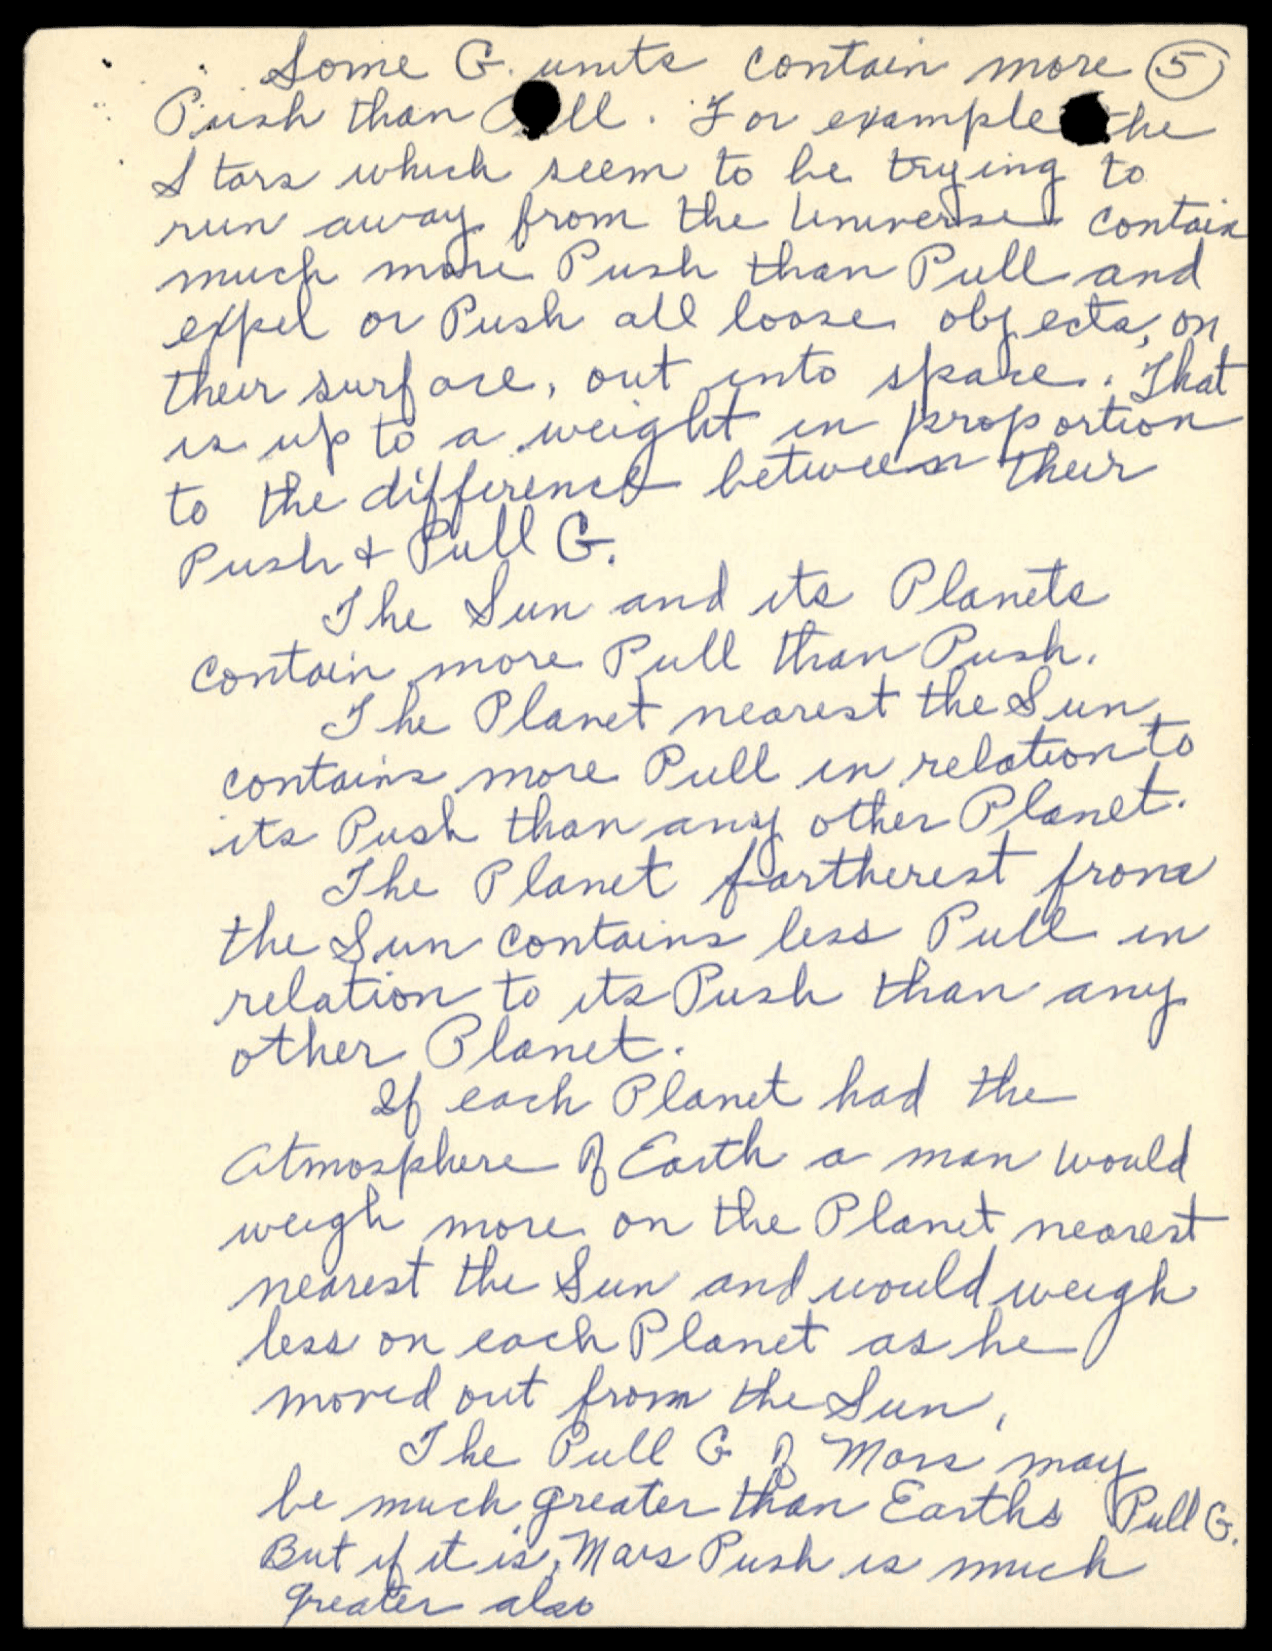 Some G. units contain more 5
Push than Pull. For example the
Stars which seem to be trying to
run away from the Universe contain
much more Push than Pull and
expel or Push all loose objects, on
their surface, out into space. That
is up to a weight in proportion
to the difference between their
Push & Pull G.
The Sun and its Planets
contain more Pull than Push.
The Planet nearest the Sun
contains more Pull in relation to
its Push than any other Planet.
The Planet fartherest from
the Sun contains less Pull in
relation to its Push than any
other Planet.
If each Planet had the
Atmosphere of Earth a man would
weigh more on the Planet nearest
nearest the Sun and would weigh
less on each Planet as he
moved out from the Sun.
The Pull G of Mars may
be much greater than Earths Pull G.
But if it is, Mars Push is much
greater also